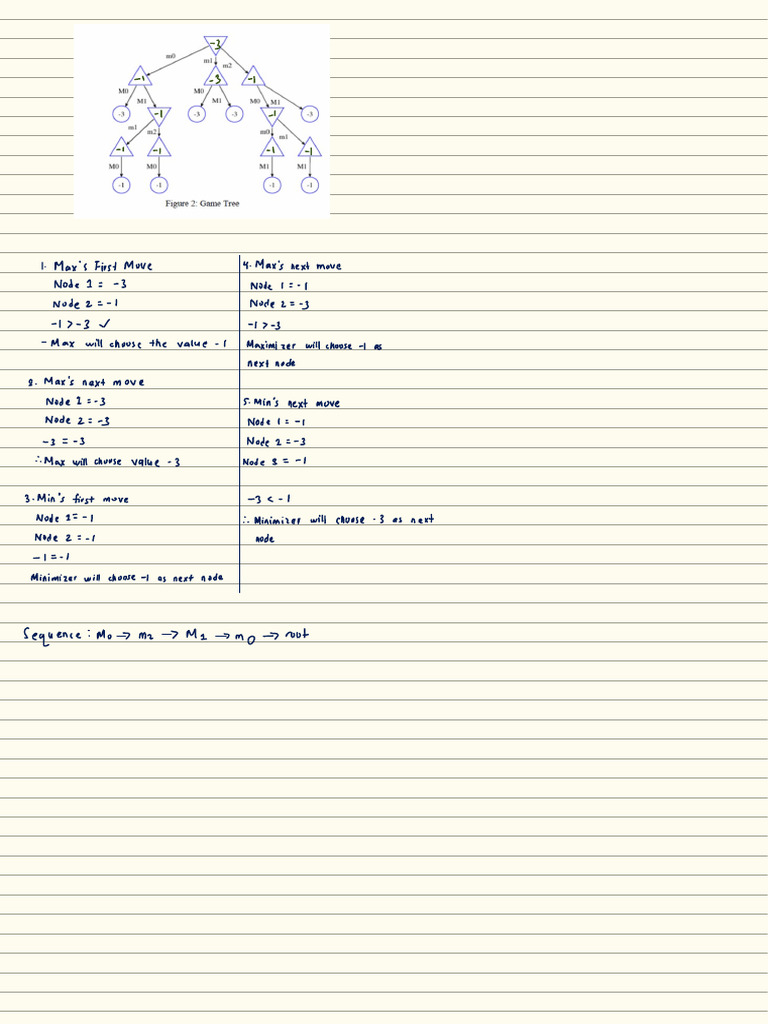 -3
m0
m1
m2
-1
-3
-1
M0
M1
M0
M1
M0
M1
-3
-1
-3
-3
-1
-3
m1
m2
m0
m1
-1
-1
-1
-1
M0
M0
M1
M1
-1
-1
-1
-1
Figure 2: Game Tree
1. Max's First Move
Node 1 = -3
Node 2 = -1
-1 > -3 ✓
- Max will choose the value -1
2. Max's next move
Node 1 = -3
Node 2 = -3
-3 = -3
∴ Max will choose value -3
3. Min's first move
Node 1 = -1
Node 2 = -1
-1 = -1
Minimizer will choose -1 as next node
4. Max's next move
Node 1 = -1
Node 2 = -3
-1 > -3
Maximizer will choose -1 as
next node
5. Min's next move
Node 1 = -1
Node 2 = -3
Node 3 = -1
-3 < -1
∴ Minimizer will choose -3 as next
node
Sequence: M0 → m2 → M1 → m0 → root